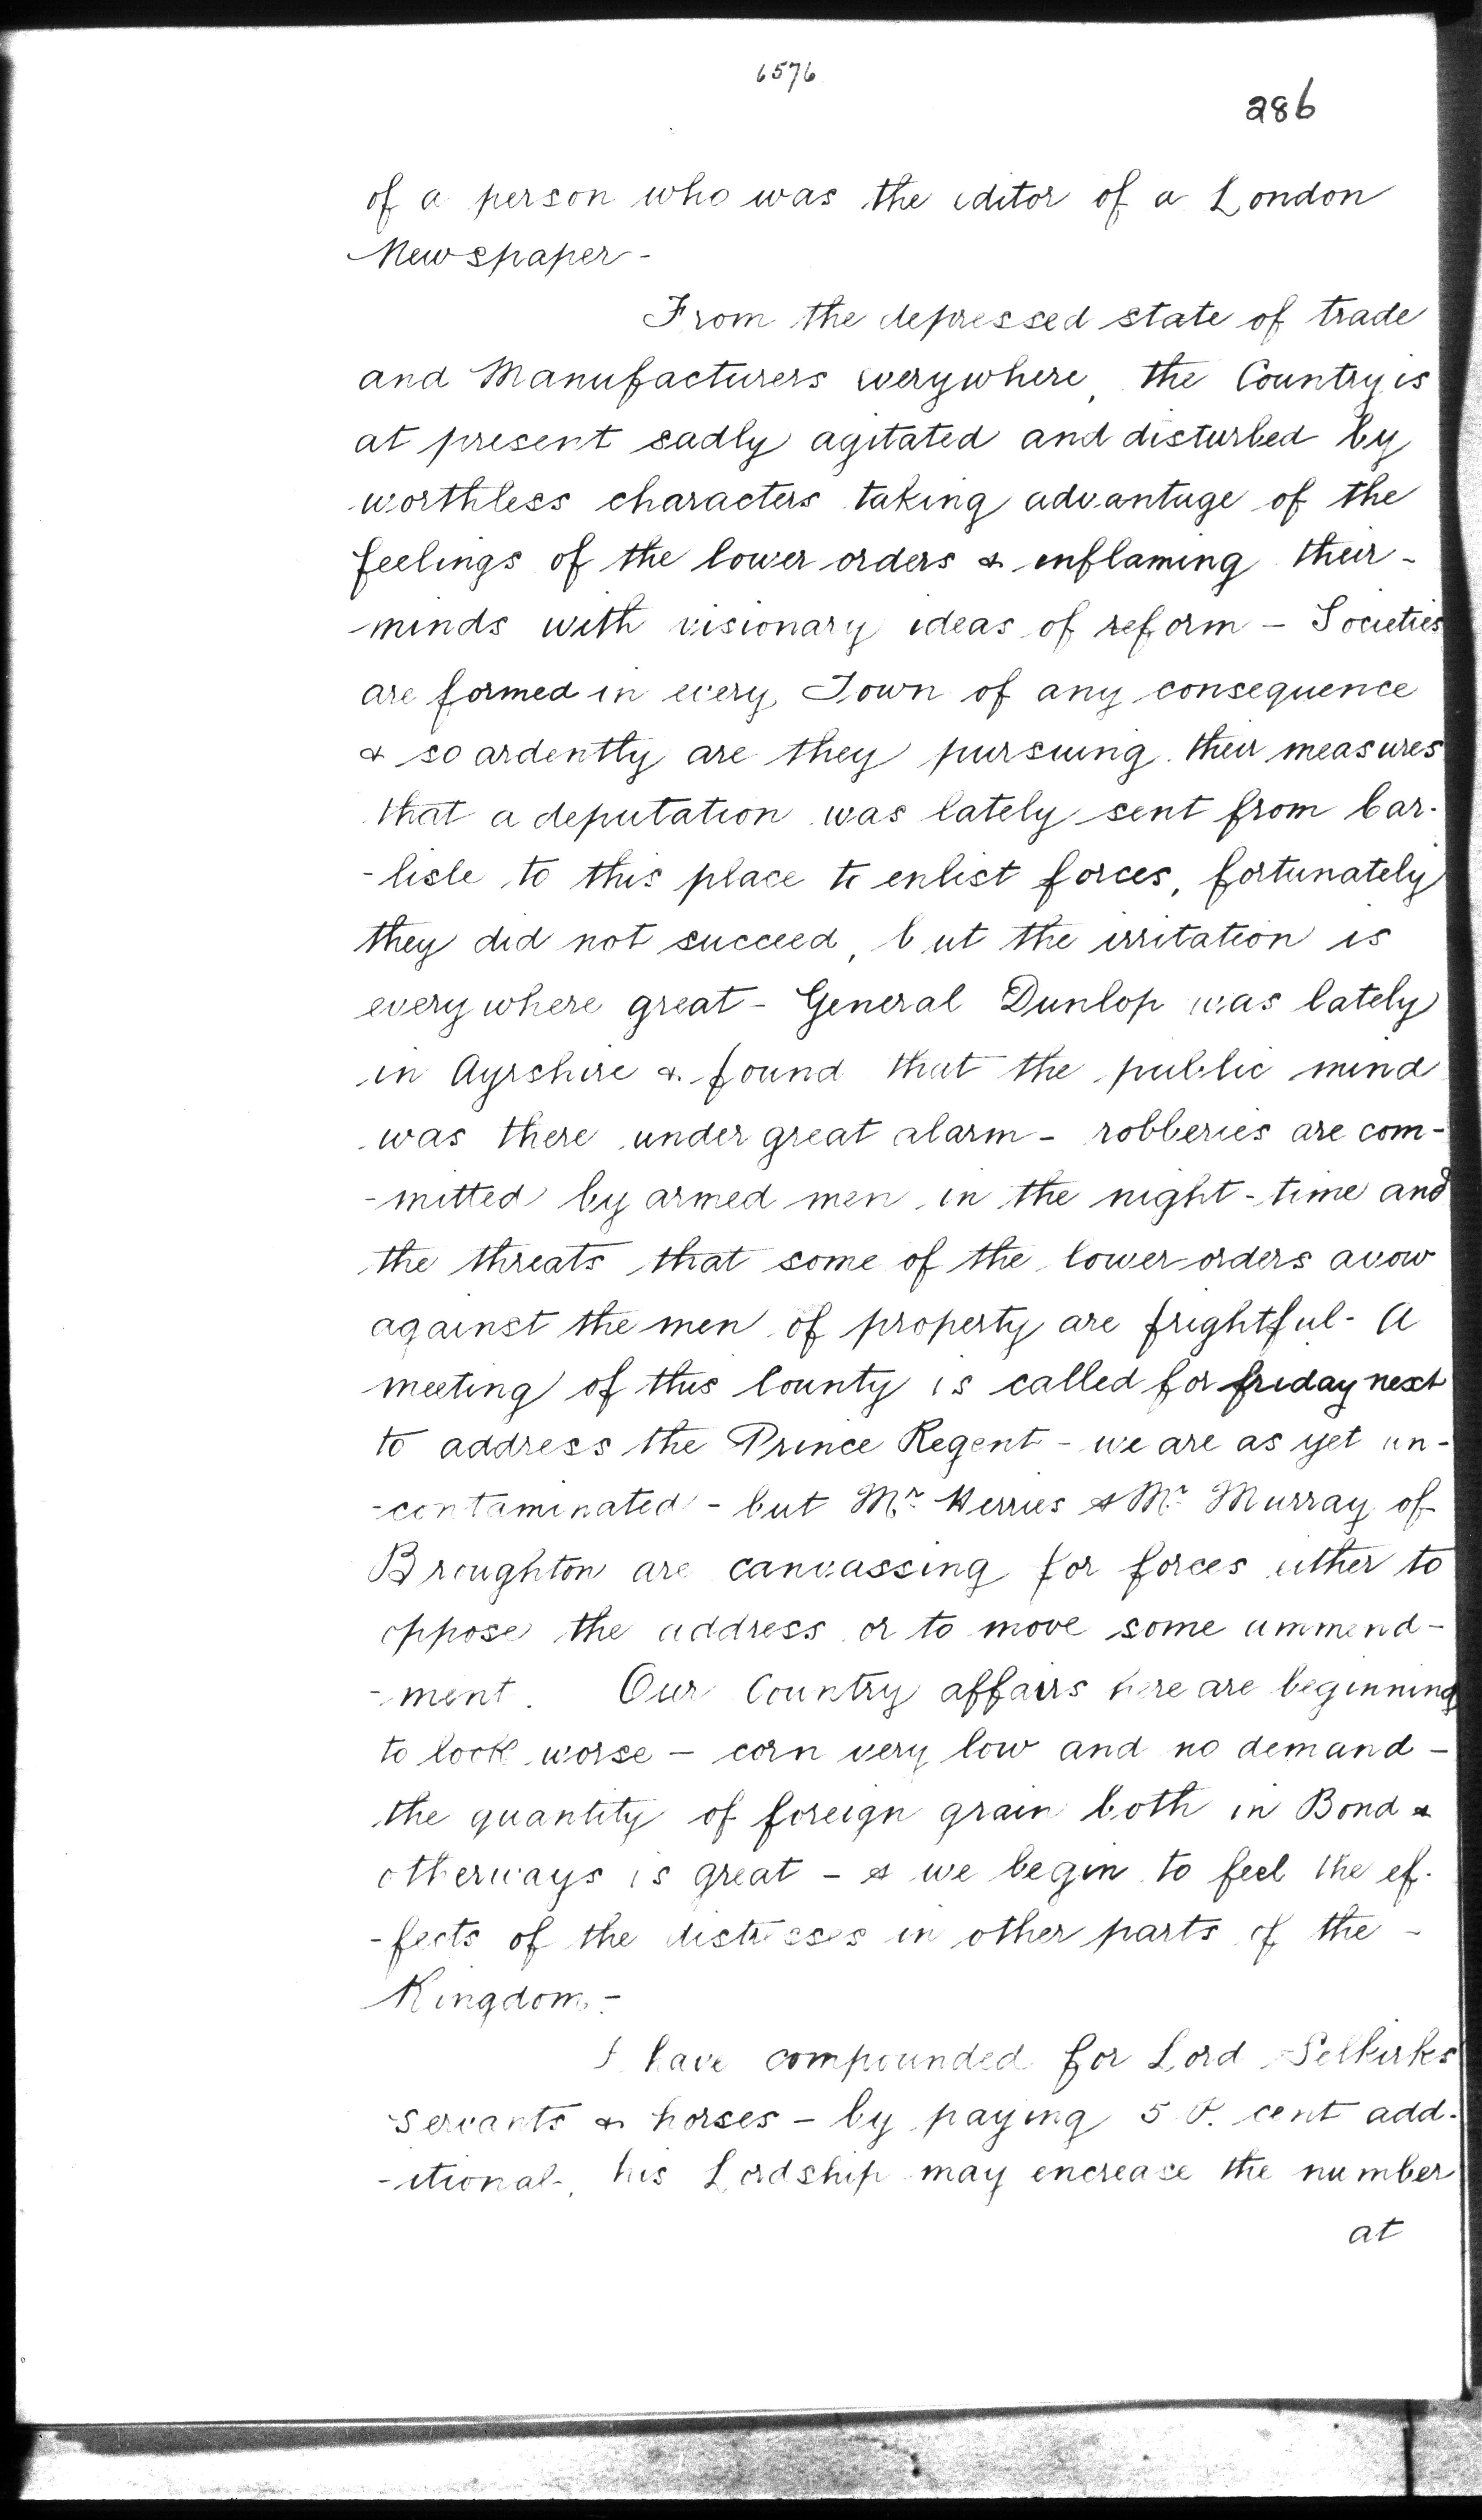 6576
286
of a person who was the editor of a London
Newspaper -
From the depressed state of trade
and Manufacturers everywhere, the Country is
at present sadly agitated and disturbed by
worthless characters taking advantage of the
feelings of the lower orders & inflaming their -
minds with visionary ideas of reform - Societies
are formed in every Town of any consequence
& so ardently are they pursuing their measures
that a deputation was lately sent from Car-
-lisle to this place to enlist forces, fortunately
they did not succeed, but the irritation is
everywhere great - General Dunlop was lately
in Ayrshire & found that the public mind
was there under great alarm - robberies are com-
-mitted by armed men in the night-time and
the threats that some of the lower orders avow
against the men of property are frightful - A
meeting of this County is called for friday next
to address the Prince Regent - we are as yet un-
-contaminated - but Mr Herries & Mr Murray of
Broughton are canvassing for forces either to
oppose the address or to move some ammend-
-ment. Our Country affairs here are beginning
to look worse - corn very low and no demand -
the quantity of foreign grain both in Bond &
otherways is great - & we begin to feel the ef-
-fects of the distresses in other parts of the -
Kingdom. -
I have compounded for Lord Selkirks
Servants & horses - by paying 5 P. cent add-
-itional, his Lordship may encrease the number
at